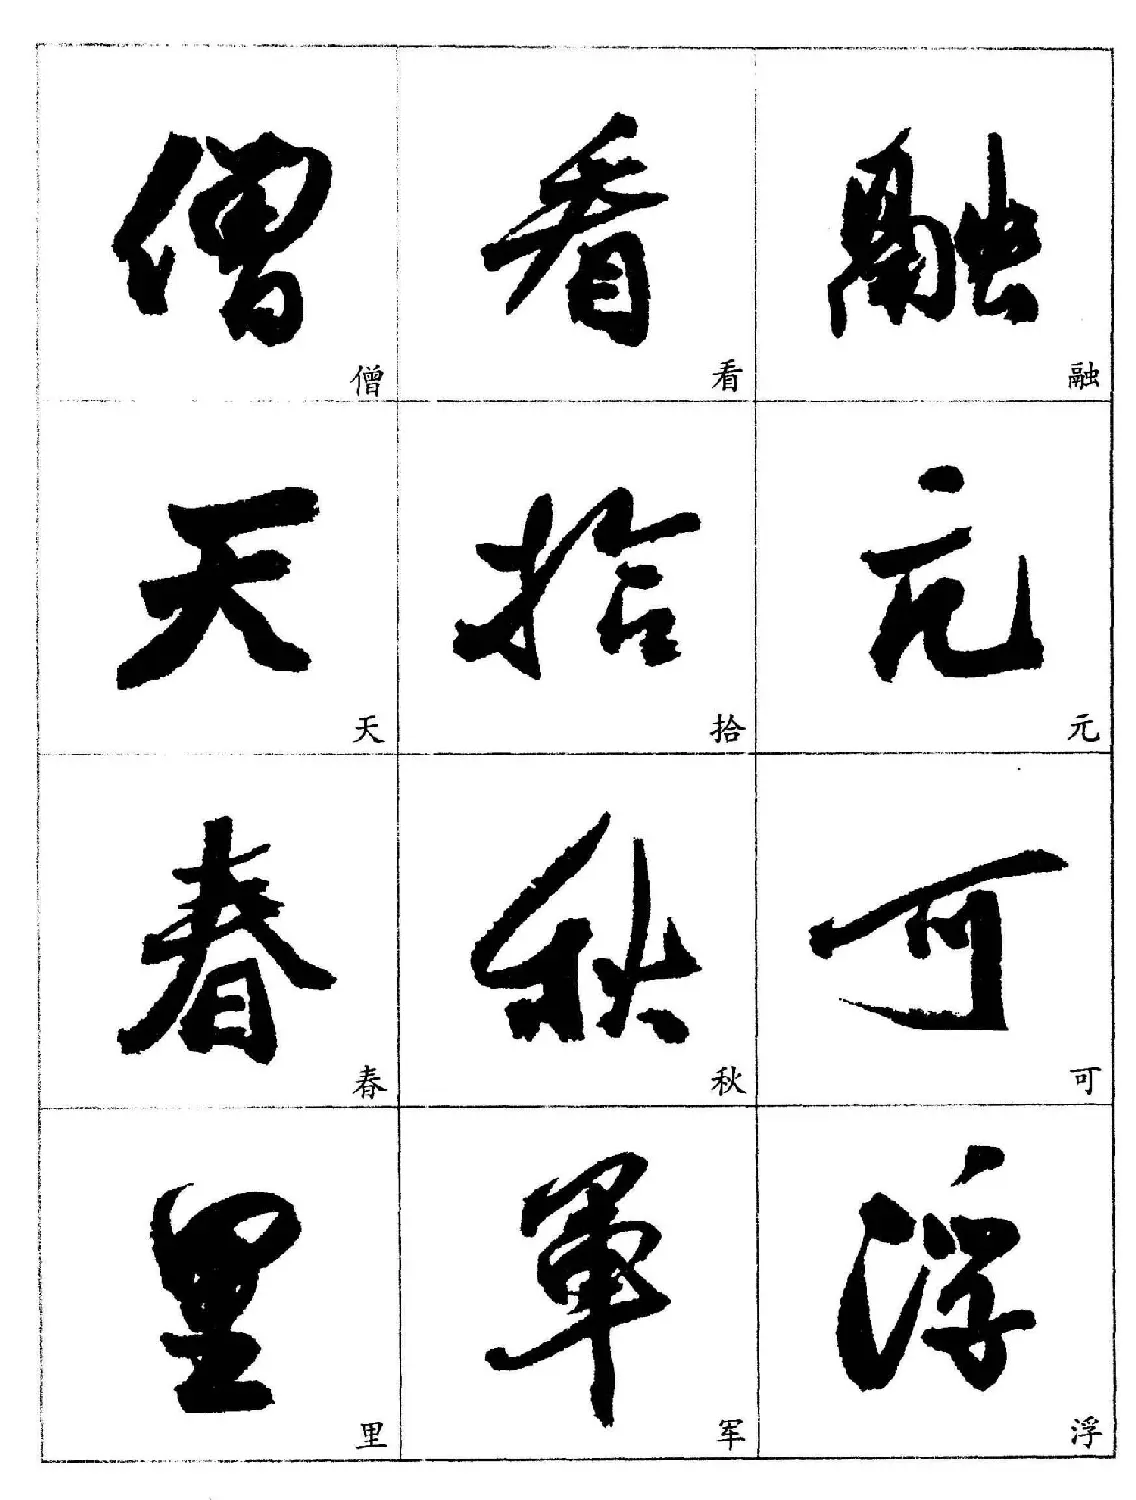 僧 看 融
僧 看 融
天 拾 元
天 拾 元
春 秋 可
春 秋 可
里 軍 浮
里 军 浮